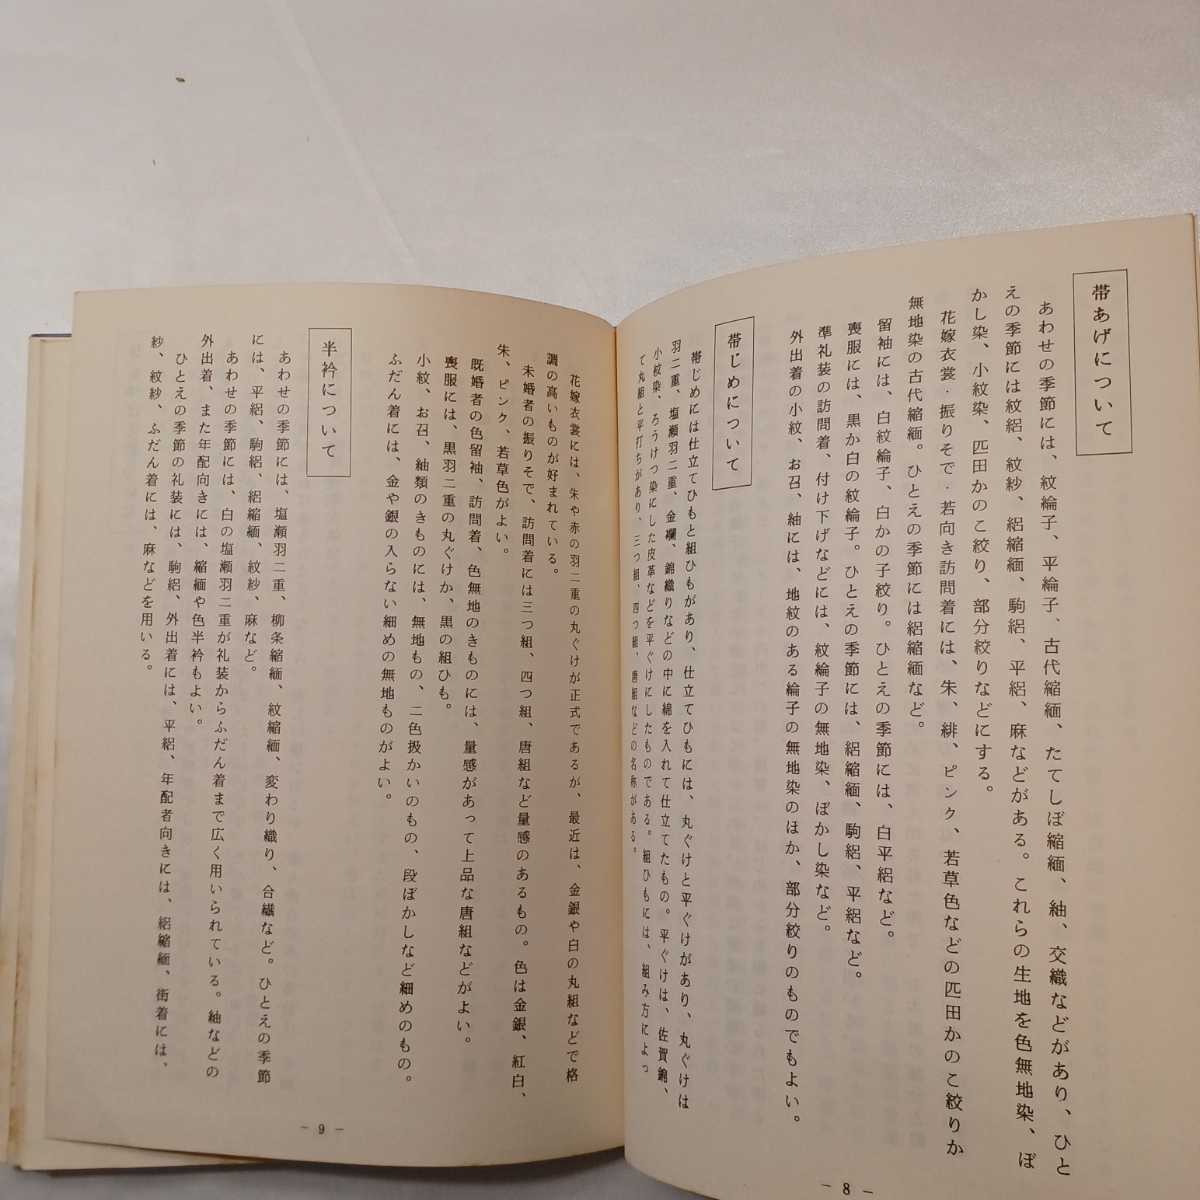 帯あげについて
あわせの季節には、紋綸子、平綸子、古代縮緬、たてしぼ縮緬、紬、交織などがあり、ひと
えの季節には紋絽、紋紗、絽縮緬、駒絽、平絽、麻などがある。これらの生地を色無地染、ぼ
かし染、小紋染、匹田かのこ絞り、部分絞りなどにする。
花嫁衣裳・振りそで・若向き訪問着には、朱、緋、ピンク、若草色などの匹田かのこ絞りか
無地染の古代縮緬。ひとえの季節には絽縮緬など。
留袖には、白紋綸子、白かの子絞り。ひとえの季節には、白平絽など。
喪服には、黒か白の紋綸子。ひとえの季節には、絽縮緬、駒絽、平絽など。
準礼装の訪問着、付け下げなどには、紋綸子の無地染、ぼかし染など。
外出着の小紋、お召、紬には、地紋のある綸子の無地染のほか、部分絞りのものでもよい。
帯じめについて
帯じめには仕立てひもと組ひもがあり、仕立てひもには、丸ぐけと平ぐけがあり、丸ぐけは
羽二重、塩瀬羽二重、金襴、錦織りなどの中に綿を入れて仕立てたもの。平ぐけは、佐賀錦、
小紋染、ろうけつ染にした皮革などを平ぐけにしたものである。組ひもには、組み方によっ
て丸組と平打ちがあり、三つ組、四つ組、唐組などの名称がある。
－8－
花嫁衣裳には、朱や赤の羽二重の丸ぐけが正式であるが、最近は、金銀や白の丸組などで格
調の高いものが好まれている。
未婚者の振りそで、訪問着には三つ組、四つ組、唐組など量感のあるもの。色は金銀、紅白、
朱、ピンク、若草色がよい。
既婚者の色留袖、訪問着、色無地のきものには、量感があって上品な唐組などがよい。
喪服には、黒羽二重の丸ぐけか、黒の組ひも。
小紋、お召、紬類のきものには、無地もの、二色扱かいのもの、段ぼかしなど細めのもの。
ふだん着には、金や銀の入らない細めの無地ものがよい。
半衿について
あわせの季節には、塩瀬羽二重、柳条縮緬、紋縮緬、変わり織り、合繊など。ひとえの季節
には、平絽、駒絽、絽縮緬、紋紗、麻など。
あわせの季節には、白の塩瀬羽二重が礼装からふだん着まで広く用いられている。紬などの
外出着、また年配向きには、縮緬や色半衿もよい。
ひとえの季節の礼装には、駒絽、外出着には、平絽、年配者向きには、絽縮緬、街着には、
紗、紋紗、ふだん着には、麻などを用いる。
－9－